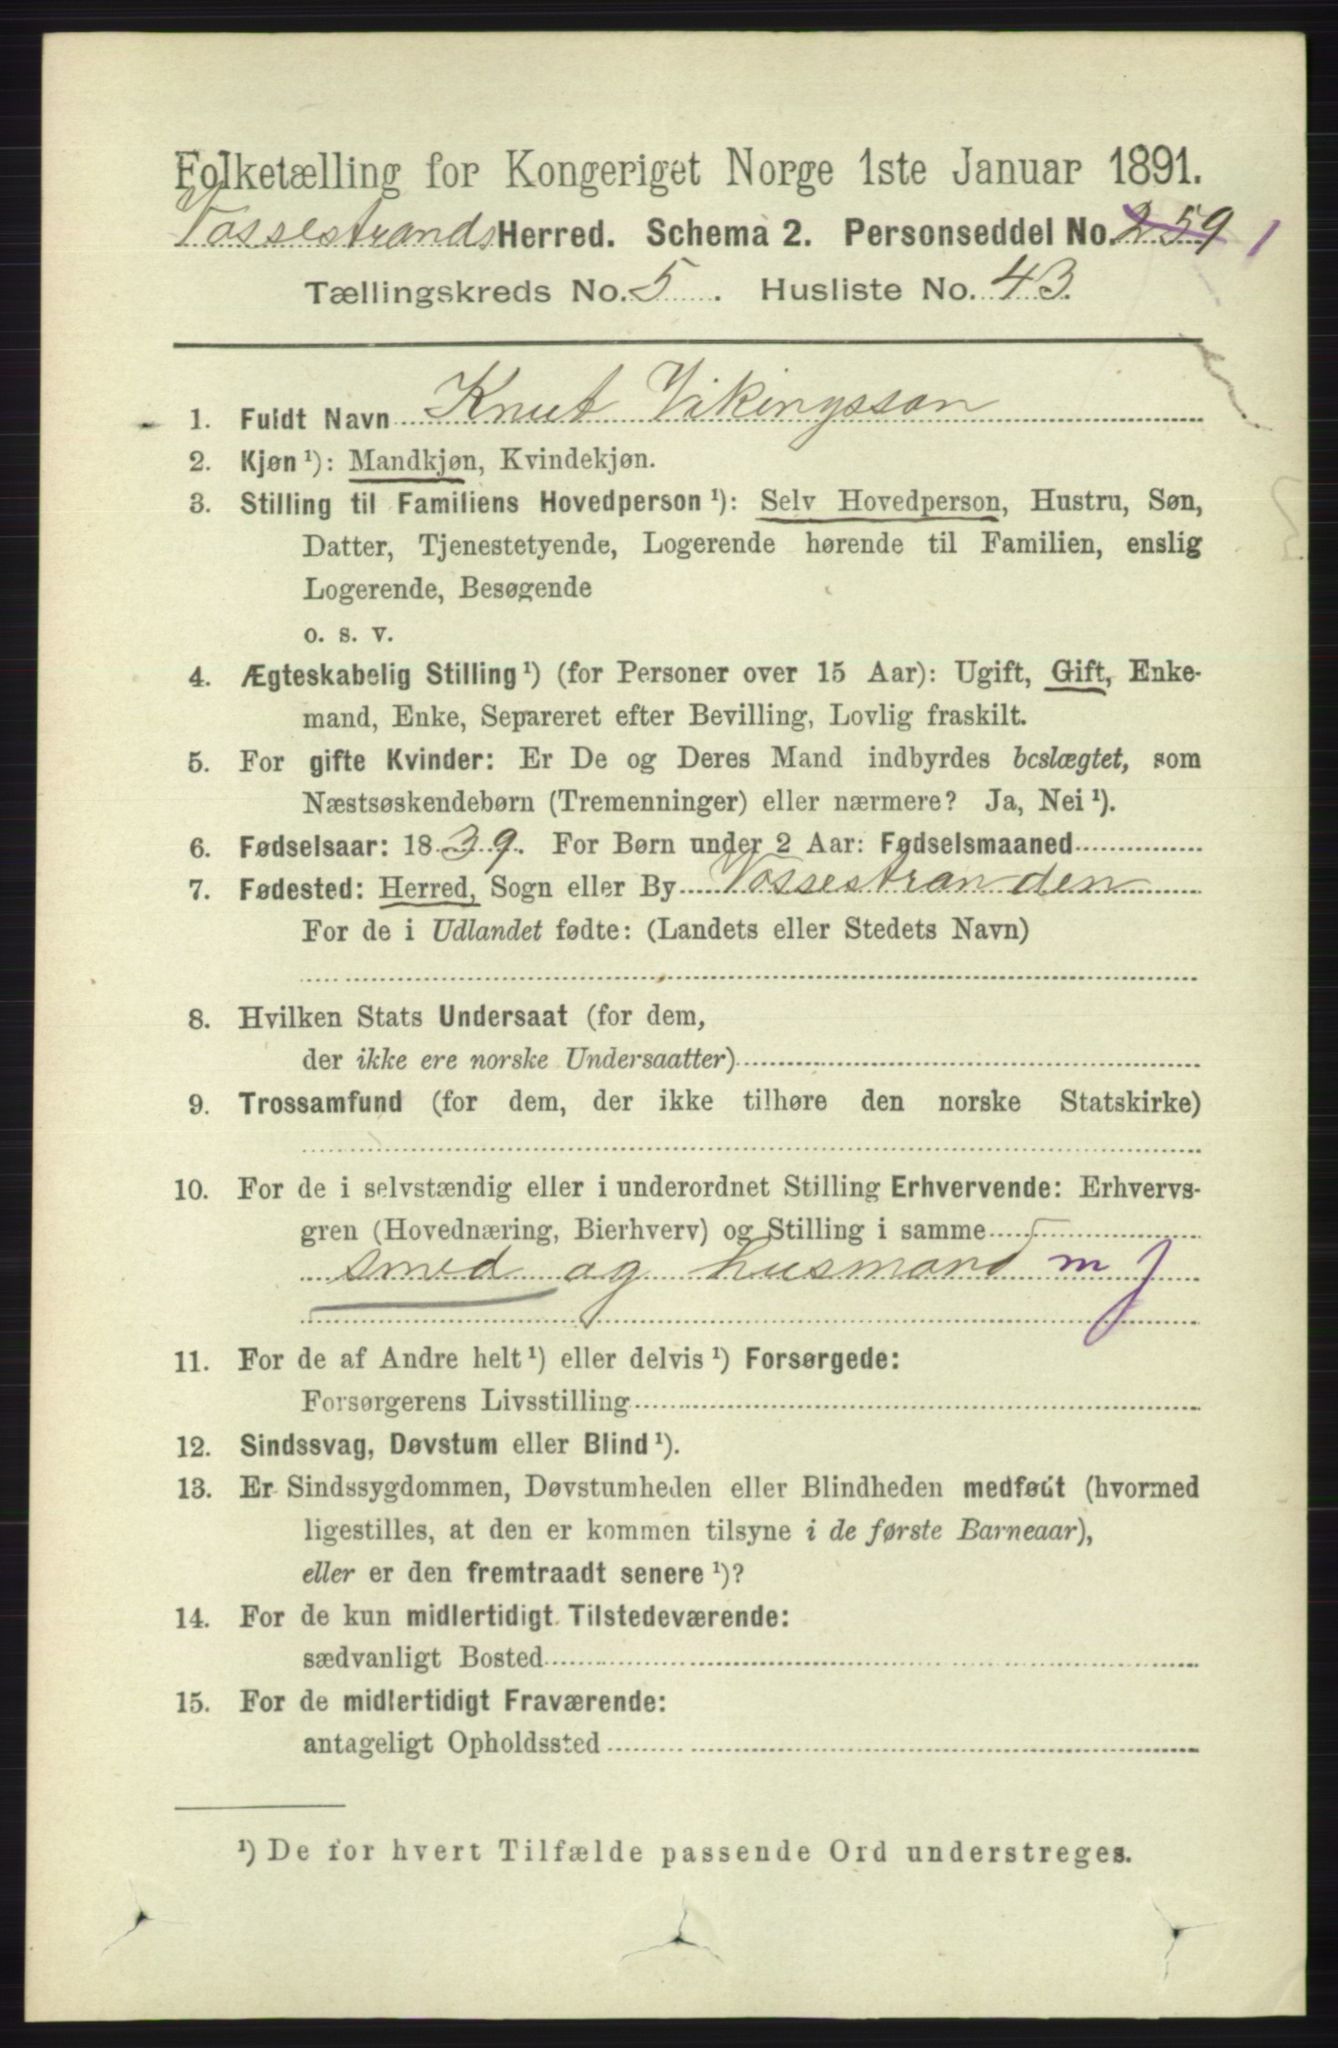 Folketælling for Kongeriget Norge 1ste Januar 1891.
Vossestrands Herred. Schema 2. Personseddel No. 259 1
Tællingskreds No. 5. Husliste No. 43.
1. Fuldt Navn Knut Vikingsson
2. Kjøn ¹): Mandkjøn, Kvindekjøn.
3. Stilling til Familiens Hovedperson ¹): Selv Hovedperson, Hustru, Søn,
Datter, Tjenestetyende, Logerende hørende til Familien, enslig
Logerende, Besøgende
o. s. v.
4. Ægteskabelig Stilling ¹) (for Personer over 15 Aar): Ugift, Gift, Enke-
mand, Enke, Separeret efter Bevilling, Lovlig fraskilt.
5. For gifte Kvinder: Er De og Deres Mand indbyrdes beslægtet, som
Næstsøskendebørn (Tremenninger) eller nærmere? Ja, Nei ¹).
6. Fødselsaar: 1839. For Børn under 2 Aar: Fødselsmaaned
7. Fødested: Herred, Sogn eller By Vossestranden
For de i Udlandet fødte: (Landets eller Stedets Navn)
8. Hvilken Stats Undersaat (for dem,
der ikke ere norske Undersaatter)
9. Trossamfund (for dem, der ikke tilhøre den norske Statskirke)
10. For de i selvstændig eller i underordnet Stilling Erhvervende: Erhvervs-
gren (Hovednæring, Bierhverv) og Stilling i samme
smed og husmand m J
11. For de af Andre helt ¹) eller delvis ¹) Forsørgede:
Forsørgerens Livsstilling
12. Sindssvag, Døvstum eller Blind ¹).
13. Er Sindssygdommen, Døvstumheden eller Blindheden medfødt (hvormed
ligestilles, at den er kommen tilsyne i de første Barneaar),
eller er den fremtraadt senere ¹)?
14. For de kun midlertidigt Tilstedeværende:
sædvanligt Bosted
15. For de midlertidigt Fraværende:
antageligt Opholdssted
¹) De for hvert Tilfælde passende Ord understreges.